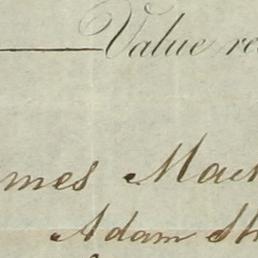 Value re
mes Mac
Adam Sh